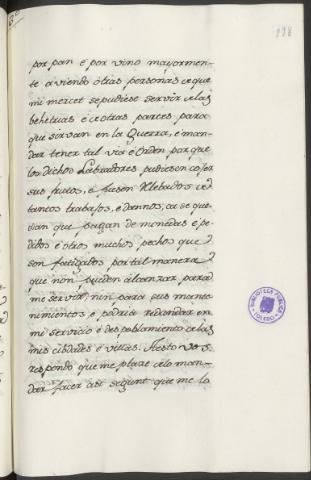 198
por pan é por vino mayormen-
te aviendo otras personas de que
mi mercet se pudiese servir de las
behetrias é de otras partes para
que sirvan en la Guerra, é man-
dar tener tal via é orden por que
los dichos Labradores pudiesen cojer
sus frutos, é fuesen relevados de
tantos trabajos, é dannos, ca se que-
xan que pagan de monedas é pe-
didos é otros muchos pechos que
son fatigados por tal manera
que non pueden alcanzar para
me servir, nin para sus mante-
nimientos, é podria redundar en
mi servicio é despoblamiento de las
mis cibdades é villas. A esto vos
respondo que me place de lo man-
dar facer asi segunt que me lo
BIBLIOTECA PUBLICA
TOLEDO